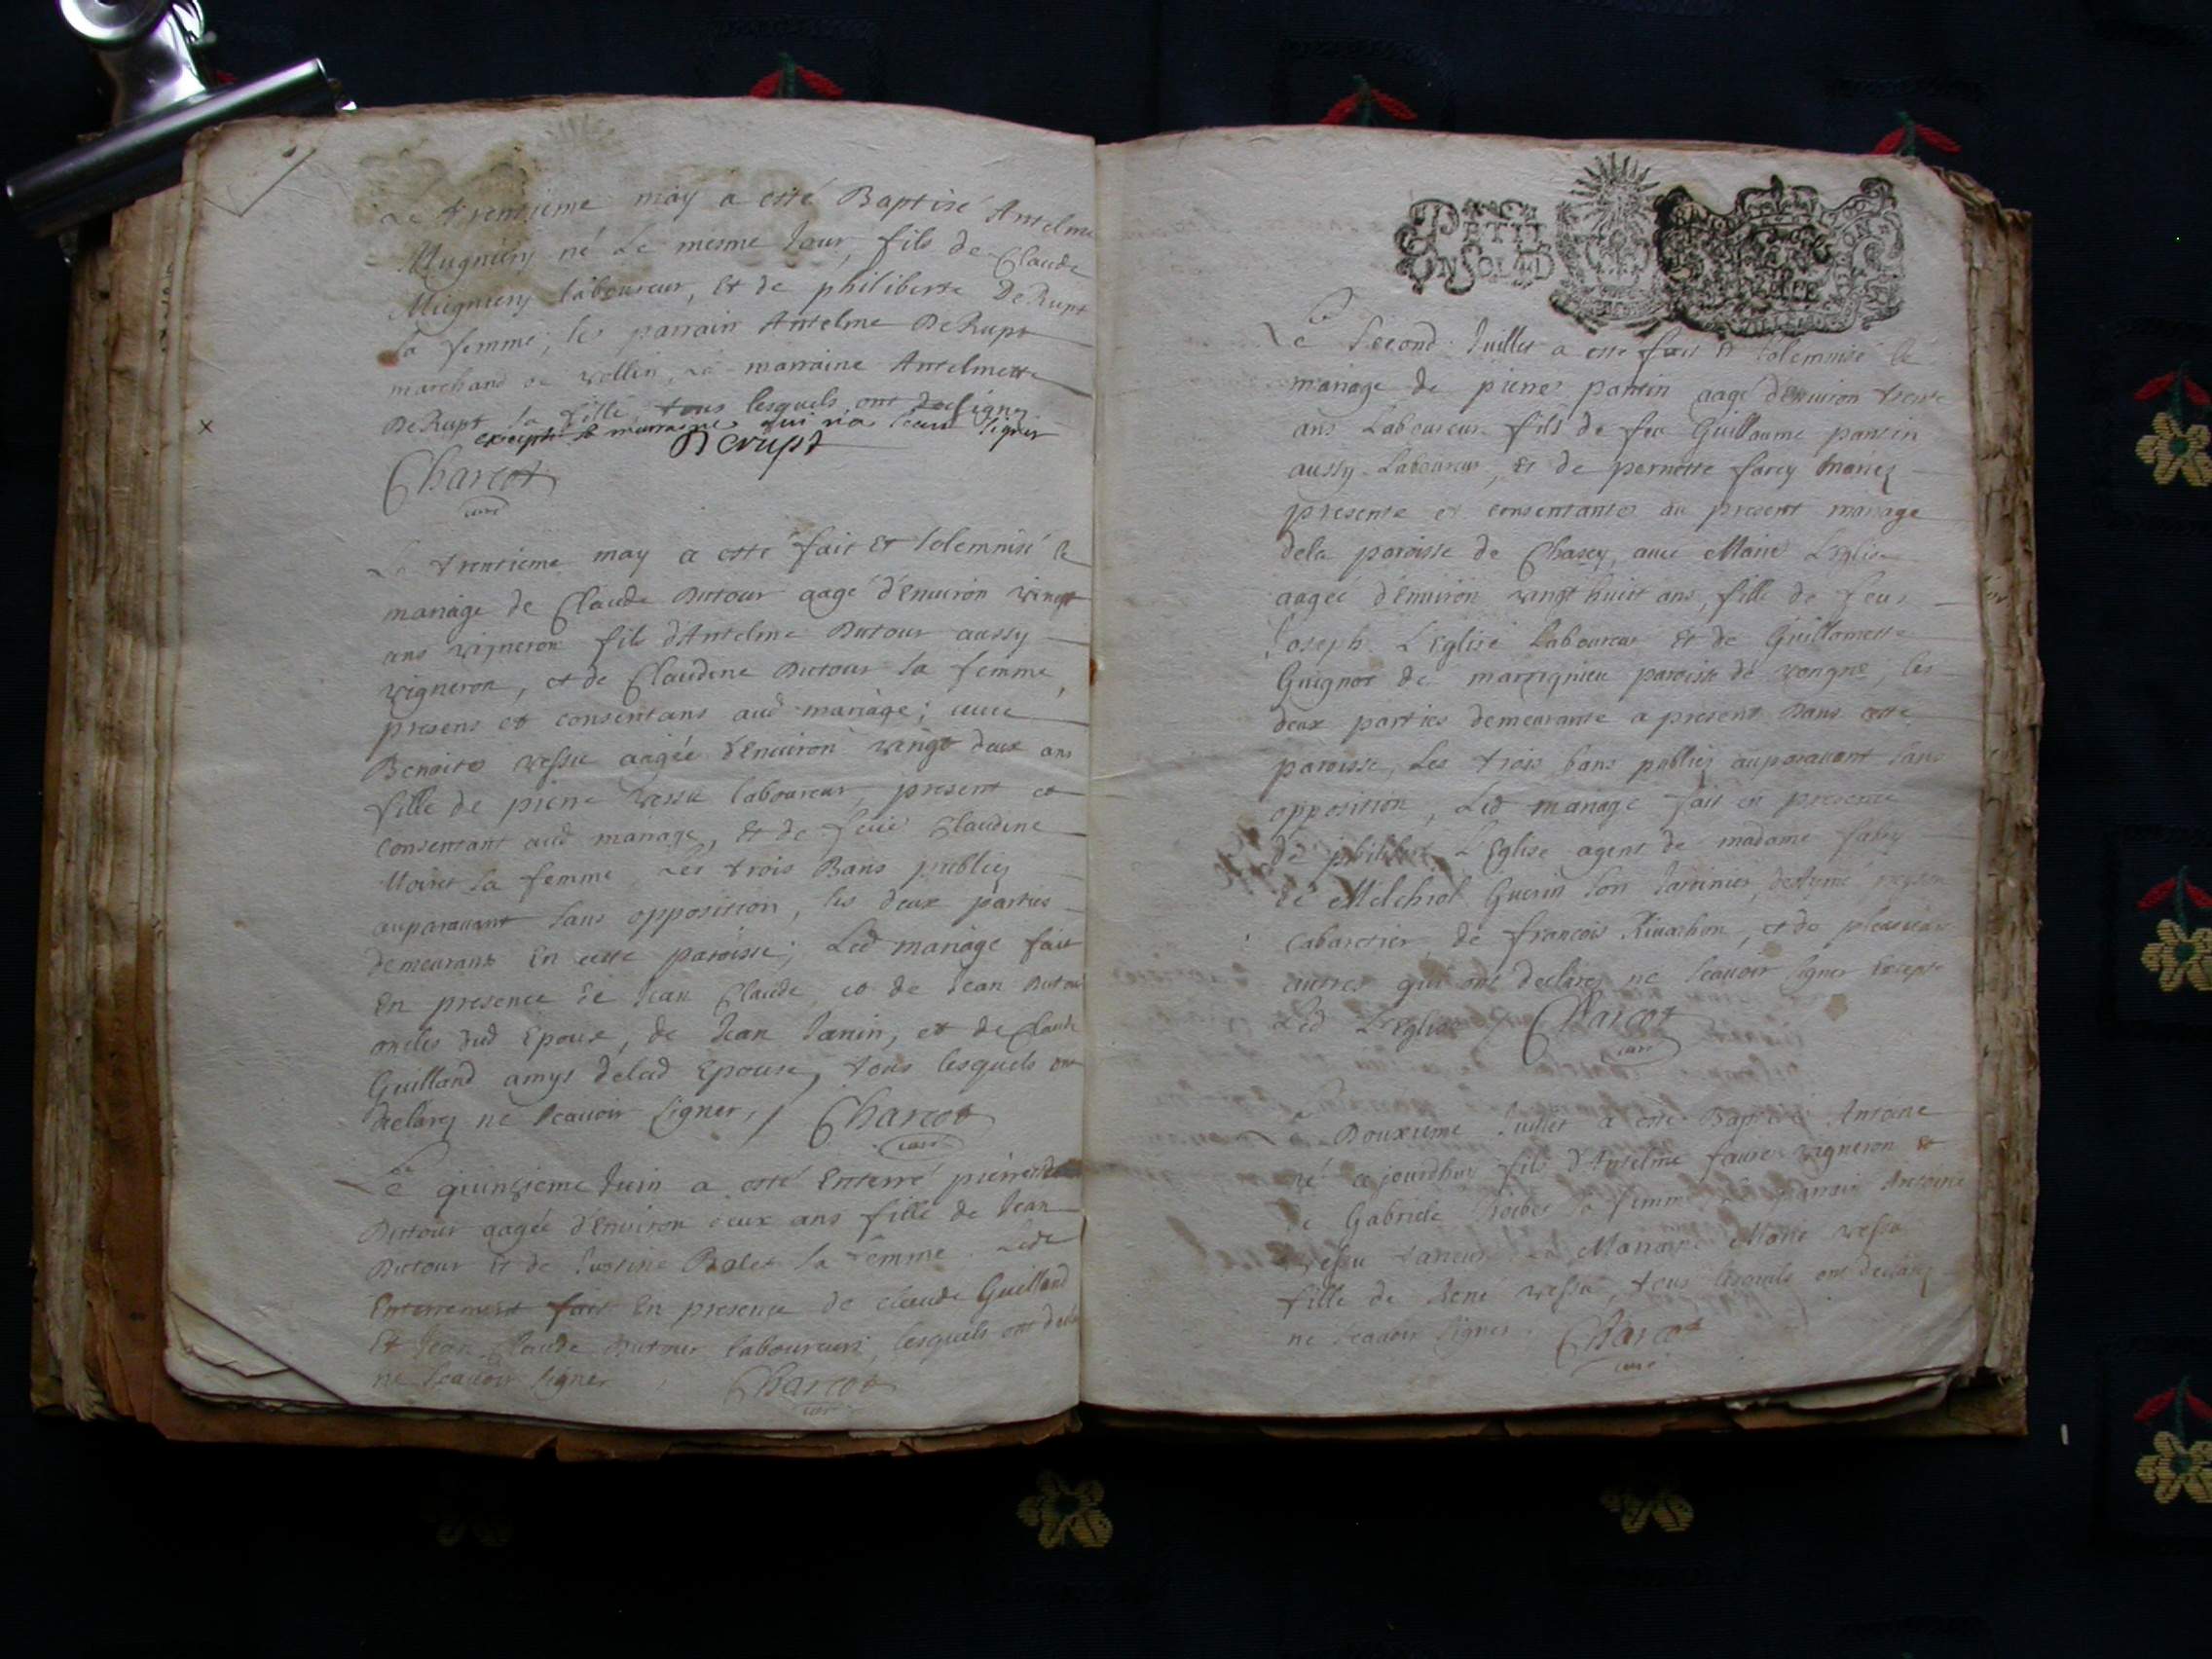 Le trentieme may a esté Baptisé Antelme
Mugniery né Le mesme Jour, fils de Claude
Mugniery laboureur, Et de philiberte DeRupt
sa femme, le parrain Antelme DeRupt
marchand de vollien, la marraine Antelmette
DeRupt sa fille, tous lesquels ont signez
excepté la marraine qui n'a sceu signer
Derupt
Charcot
curé
Le trentieme may a esté fait Et solemnisé le
mariage de Claude Dutour aagé d'Enuiron vingt
ans vigneron fils d'Antelme Dutour aussy
vigneron, et de Claudine Dutour sa femme,
presens et consentans aud mariage; auec
Benoite vessu aagée d'Enuiron vingt deux ans
fille de pierre vessu laboureur, present et
consentant aud mariage, Et de feüe Claudine
Moiret sa femme, Les trois Bans publiez
auparauant sans opposition, les deux parties
demeurans En cette paroisse; Led mariage fait
En presence de Jean Claude, et de Jean Dutour
oncles dud Epoux, de Jean Janin, et de Claude
Guilland amys delad Epouse, tous lesquels ont
declarez ne scauoir signer, / Charcot
curé
Le quinzieme Juin a esté Enterré pierrette
Dutour aagée d'Enuiron deux ans fille de Jean
Dutour Et de Justine Balet sa femme. Led
Enterrement fait En presence de claude Guilland
Et Jean Claude Dutour laboureurs, lesquels ont declarez
ne scauoir signer
Charcot
curé
PETIT
UN SOL LAD
Le second Juillet a esté fait Et solemnisé le
mariage de pierre pantin aagé d'Enuiron trente
ans Laboureur fils de feu Guillaume pantin
aussy Laboureur, Et de pernette farcy
presente et consentante au present mariage
dela paroisse de Chasey, auec Marie L'Eglise
aagée d'Enuiron vingt huict ans, fille de feu
Joseph L'Eglise Laboureur Et de Guillomette
Guignot de marrignieu paroisse de vongne, les
deux parties demeurante a present Dans cette
paroisse, Les trois bans publiez auparauant sans
opposition, Led mariage fait en presence
de philibert L'Eglise agent de madame
de Melchiol Guerin son
cabaretier, de françois Riuarbon, et de plusieurs
autres qui ont declarez ne scauoir signer Excepté
Led L'Eglise / Charcot
curé
Le Douxieme Juillet a esté Baptisé Antoine
né cejourdhuy fils d'Antelme faure vigneron Et
de Gabriele sa femme, le parrain Antoine
vessu La Marraine Marie vessu
fille de René vessu, tous lesquels ont declarez
ne scauoir signer. Charcot
curé